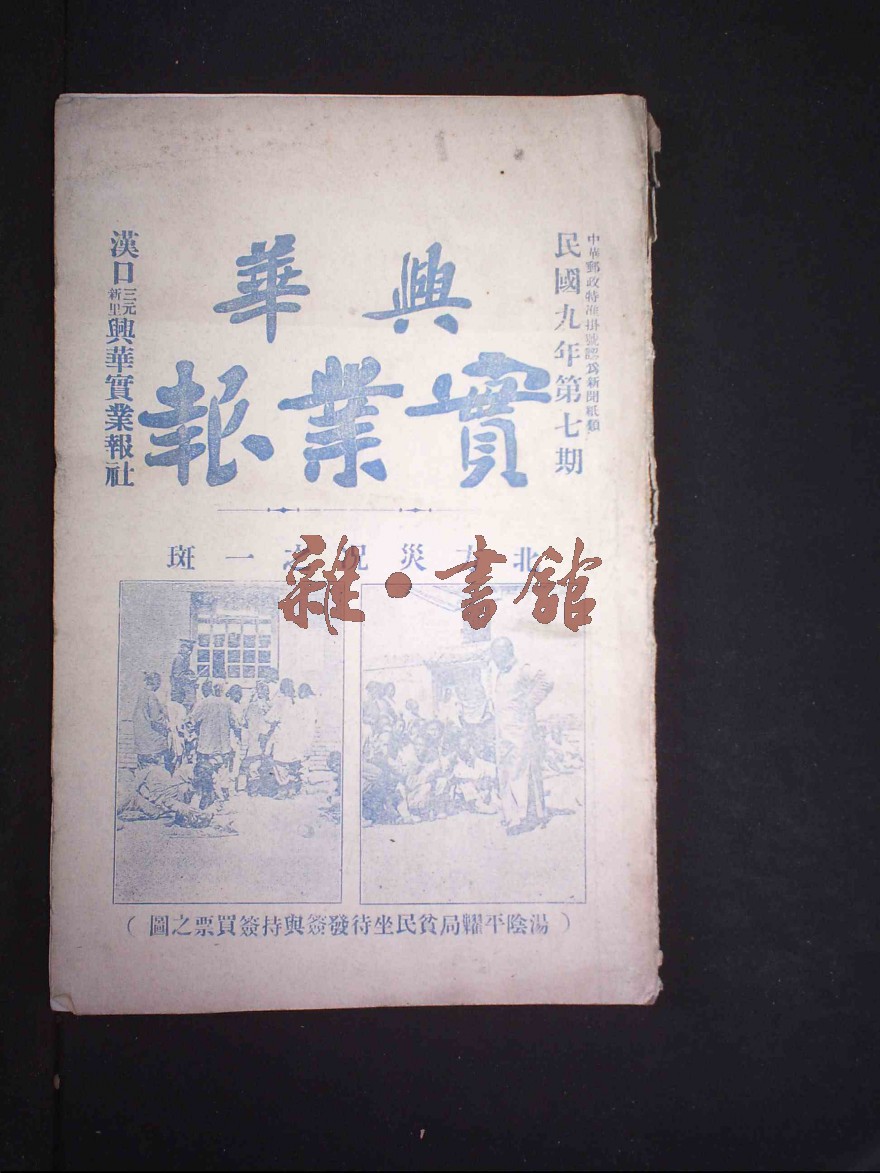 中華郵政特准掛號認爲新聞紙類
民國九年第七期
興華
實業報
漢口三元新里興華實業報社
北方災況之一斑
雜•書館
(湯陰平糶局貧民坐待發簽與持簽買票之圖)